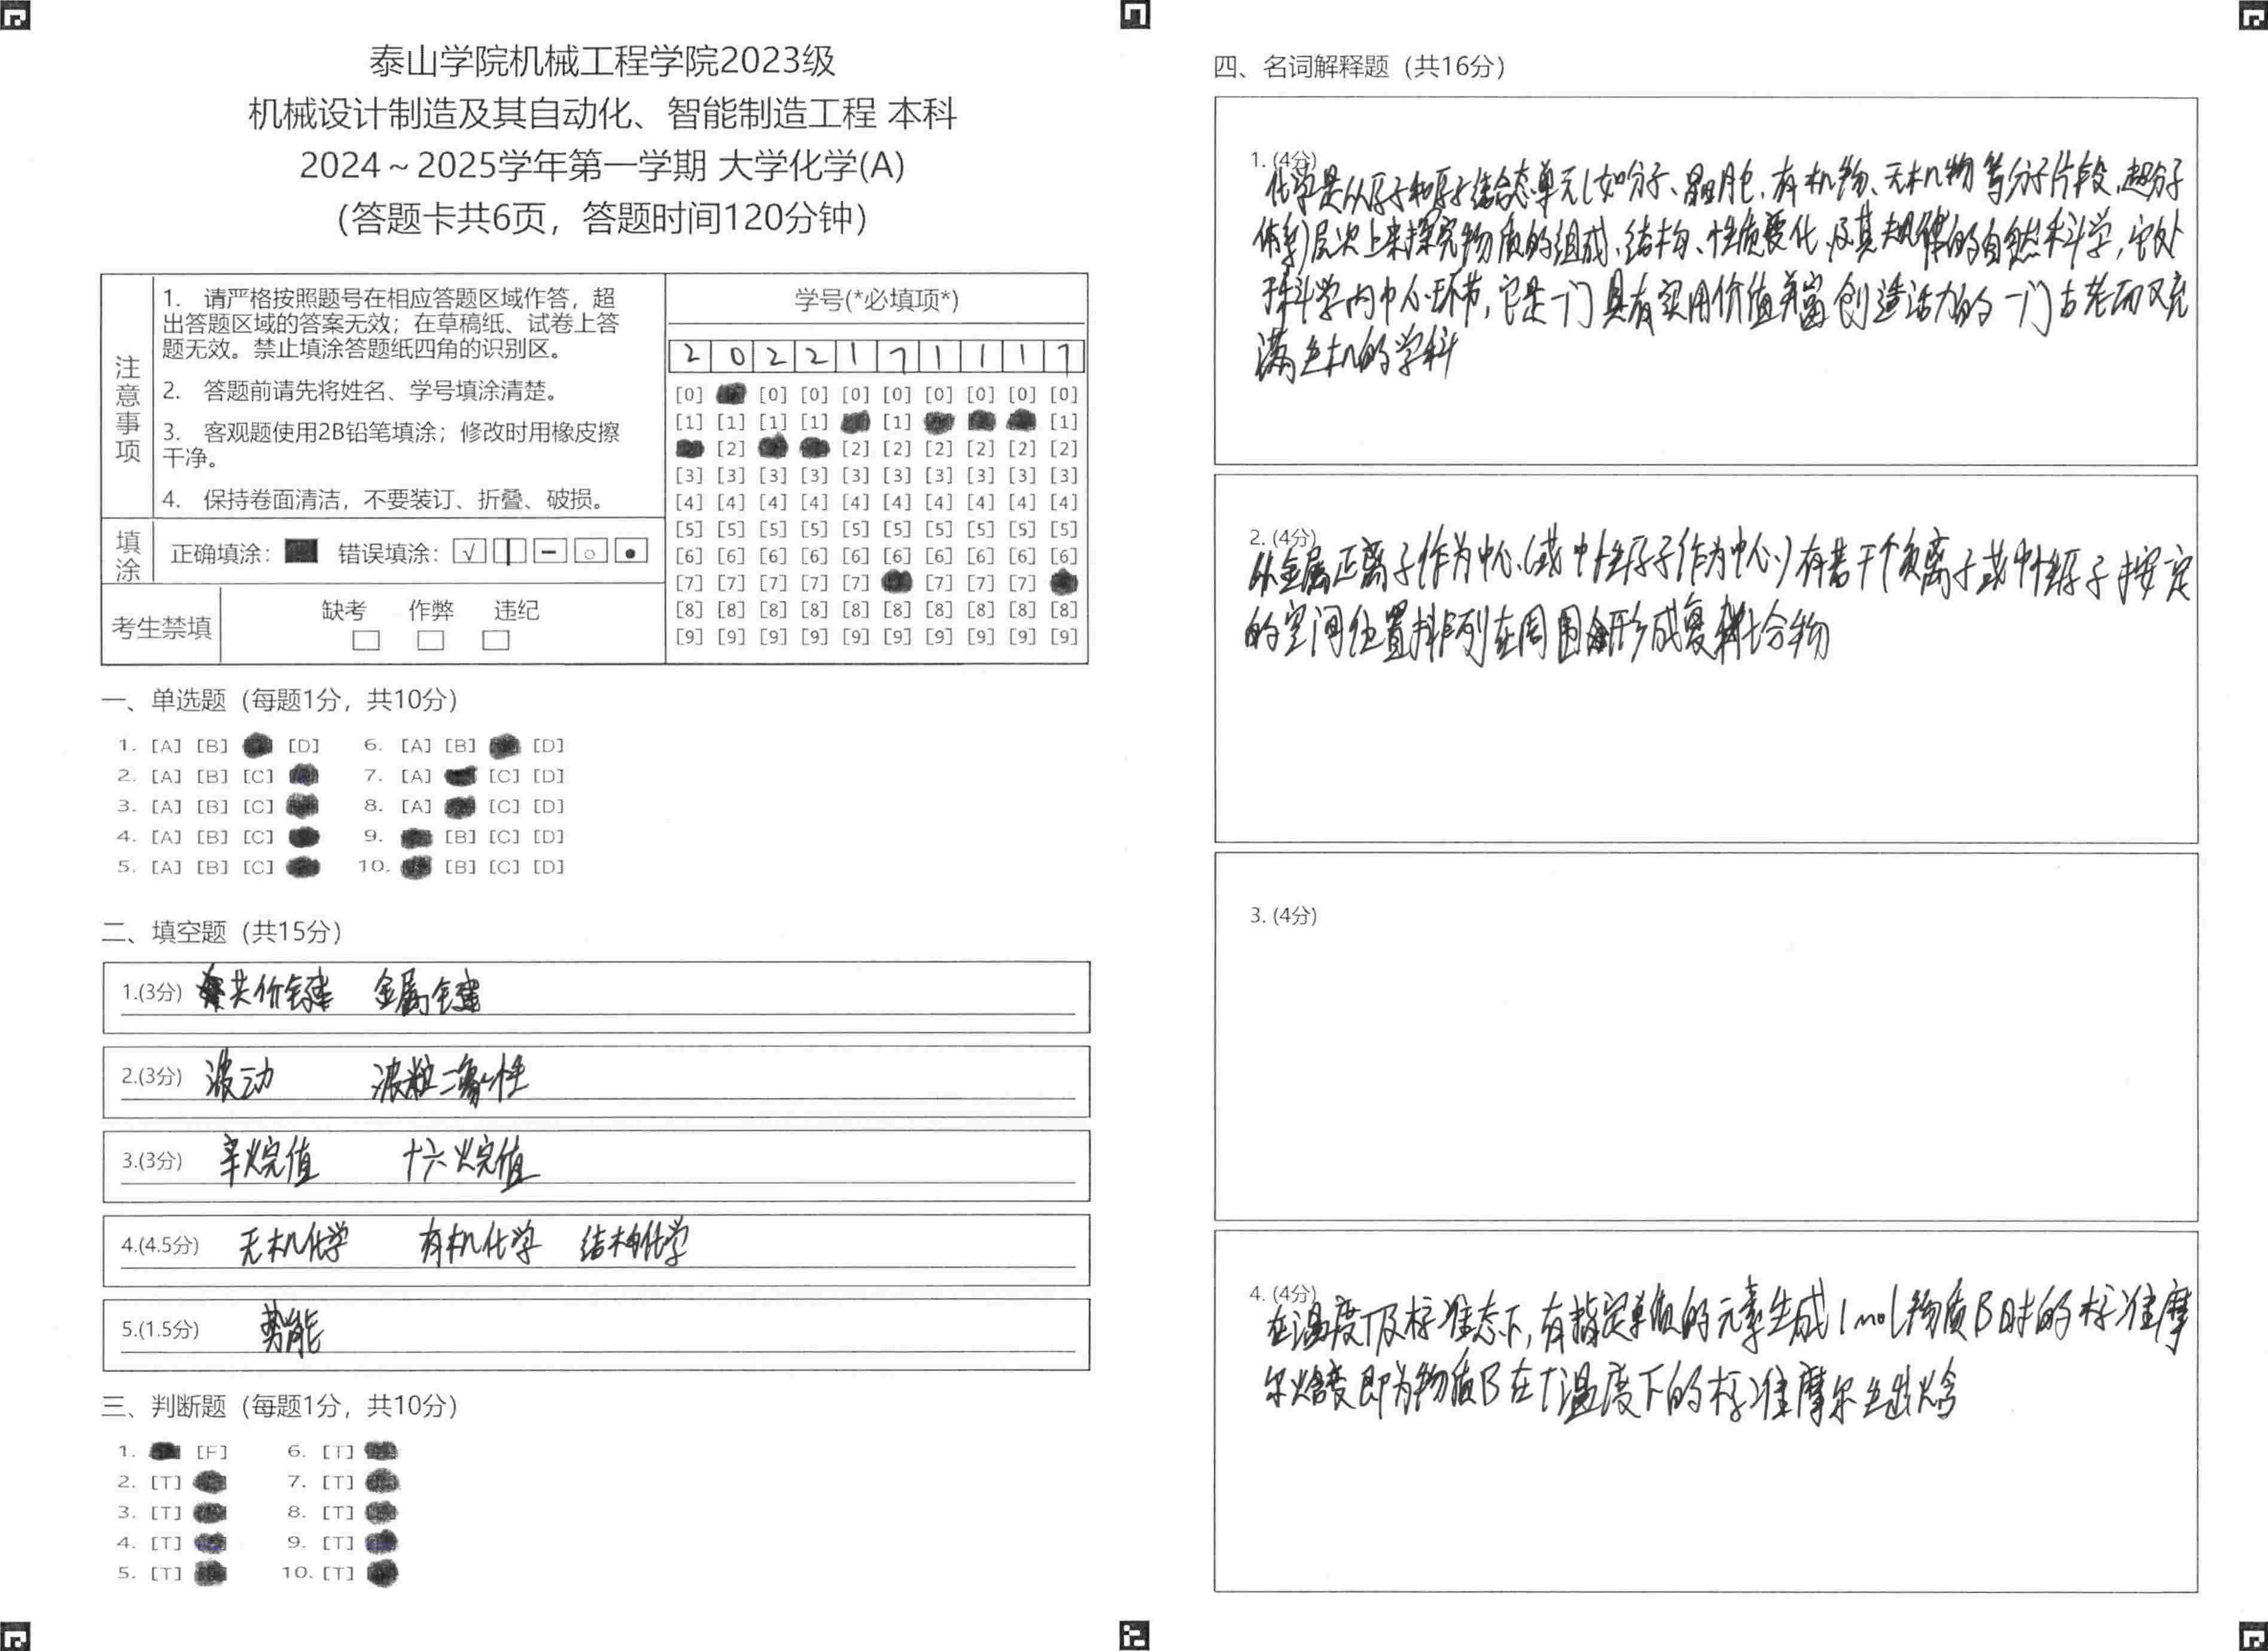 泰山学院机械工程学院2023级
机械设计制造及其自动化、智能制造工程 本科
2024～2025学年第一学期 大学化学(A)
（答题卡共6页，答题时间120分钟）
注意事项
1. 请严格按照题号在相应答题区域作答，超
出答题区域的答案无效；在草稿纸、试卷上答
题无效。禁止填涂答题纸四角的识别区。
2. 答题前请先将姓名、学号填涂清楚。
3. 客观题使用2B铅笔填涂；修改时用橡皮擦
干净。
4. 保持卷面清洁，不要装订、折叠、破损。
填涂
正确填涂： 错误填涂：
考生禁填
缺考 作弊 违纪
学号(*必填项*)
2 0 2 2 1 7 1 1 1 7
[0] [0] [0] [0] [0] [0] [0] [0] [0]
[1] [1] [1] [1] [1] [1]
[2] [2] [2] [2] [2] [2] [2]
[3] [3] [3] [3] [3] [3] [3] [3] [3] [3]
[4] [4] [4] [4] [4] [4] [4] [4] [4] [4]
[5] [5] [5] [5] [5] [5] [5] [5] [5] [5]
[6] [6] [6] [6] [6] [6] [6] [6] [6] [6]
[7] [7] [7] [7] [7] [7] [7] [7]
[8] [8] [8] [8] [8] [8] [8] [8] [8] [8]
[9] [9] [9] [9] [9] [9] [9] [9] [9] [9]
一、单选题（每题1分，共10分）
1. [A] [B] [D] 6. [A] [B] [D]
2. [A] [B] [C] 7. [A] [C] [D]
3. [A] [B] [C] 8. [A] [C] [D]
4. [A] [B] [C] 9. [B] [C] [D]
5. [A] [B] [C] 10. [B] [C] [D]
二、填空题（共15分）
1.(3分) 共价键 金属键
2.(3分) 波动 波粒二象性
3.(3分) 辛烷值 十六烷值
4.(4.5分) 无机化学 有机化学 结构化学
5.(1.5分) 势能
三、判断题（每题1分，共10分）
1. [F] 6. [T]
2. [T] 7. [T]
3. [T] 8. [T]
4. [T] 9. [T]
5. [T] 10. [T]
四、名词解释题（共16分）
1. (4分)
化学是从原子和原子结合态单元(如分子、晶胞、有机物、无机物等分子片段,超分子
体系)层次上来探究物质的组成、结构、性质变化及其规律的自然科学,它处
于科学内中心环节,它是一门具有实用价值并富创造活力的一门古老而又充
满生机的学科
2. (4分)
以金属正离子作为中心(或中性原子作为中心)有若干个负离子或中性原子按定
的空间位置排列在周围形成复杂化合物
3. (4分)
4. (4分)
在温度T及标准态下,有指定单质的元素生成1mol物质B时的标准摩
尔焓变即为物质B在T温度下的标准摩尔生成焓